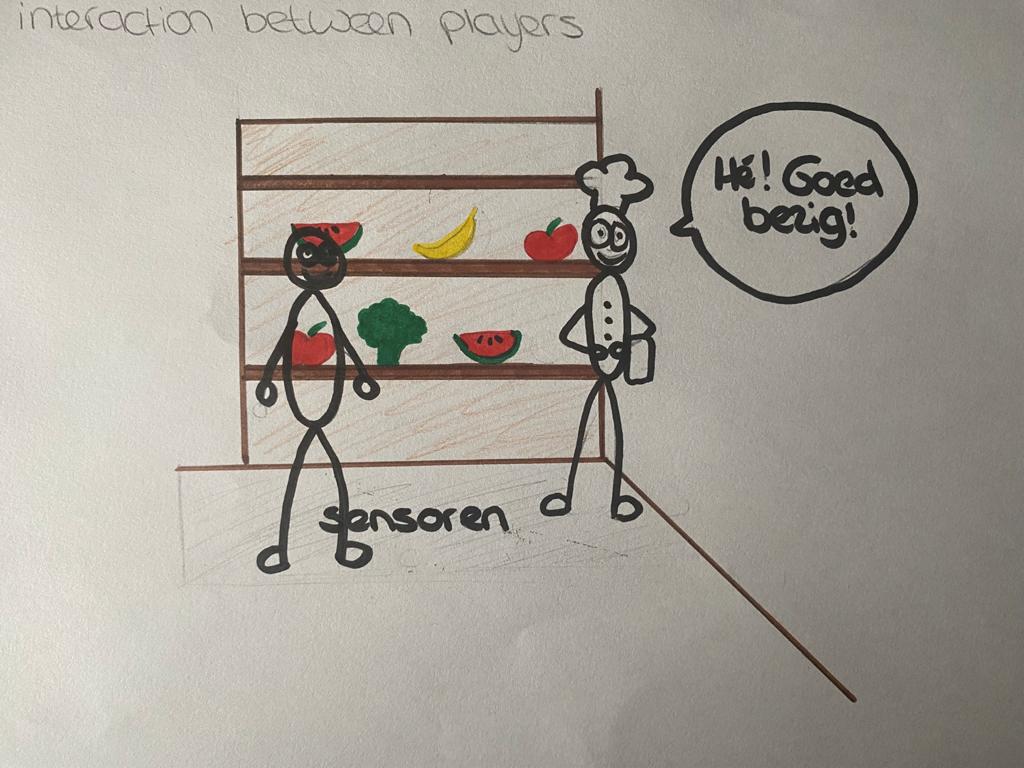 interaction between players
Hé! Goed
bezig!
sensoren